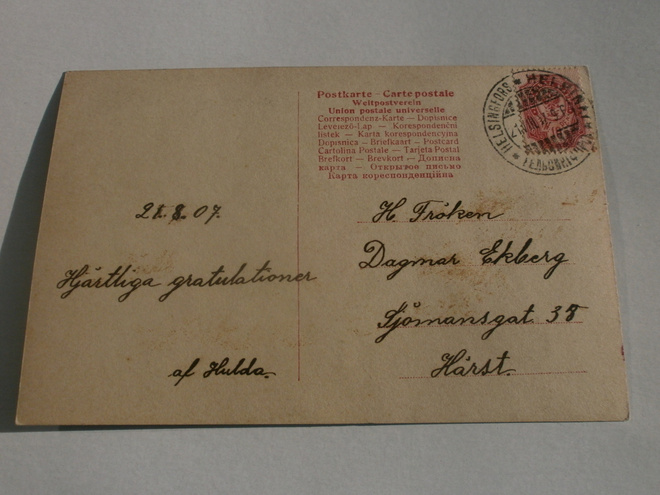 Postkarte - Carte postale
Weltpostverein
Union postale universelle
Correspondenz-Karte — Dopisnice
Levelező-Lap — Korespondenční
listek — Karta korespondencyjna
Dopisnica — Briefkaart — Postcard
Cartolina Postale — Tarjeta Postal
Brefkort — Brevkort — Дописна
карта — Открытое письмо
Карта кореспонденцiйна
HELSINGFORS
21.8.07.
Hjärtliga gratulationer
af Hulda.
H. Fröken
Dagmar Ekberg
Sjömansgat 38
Härst.